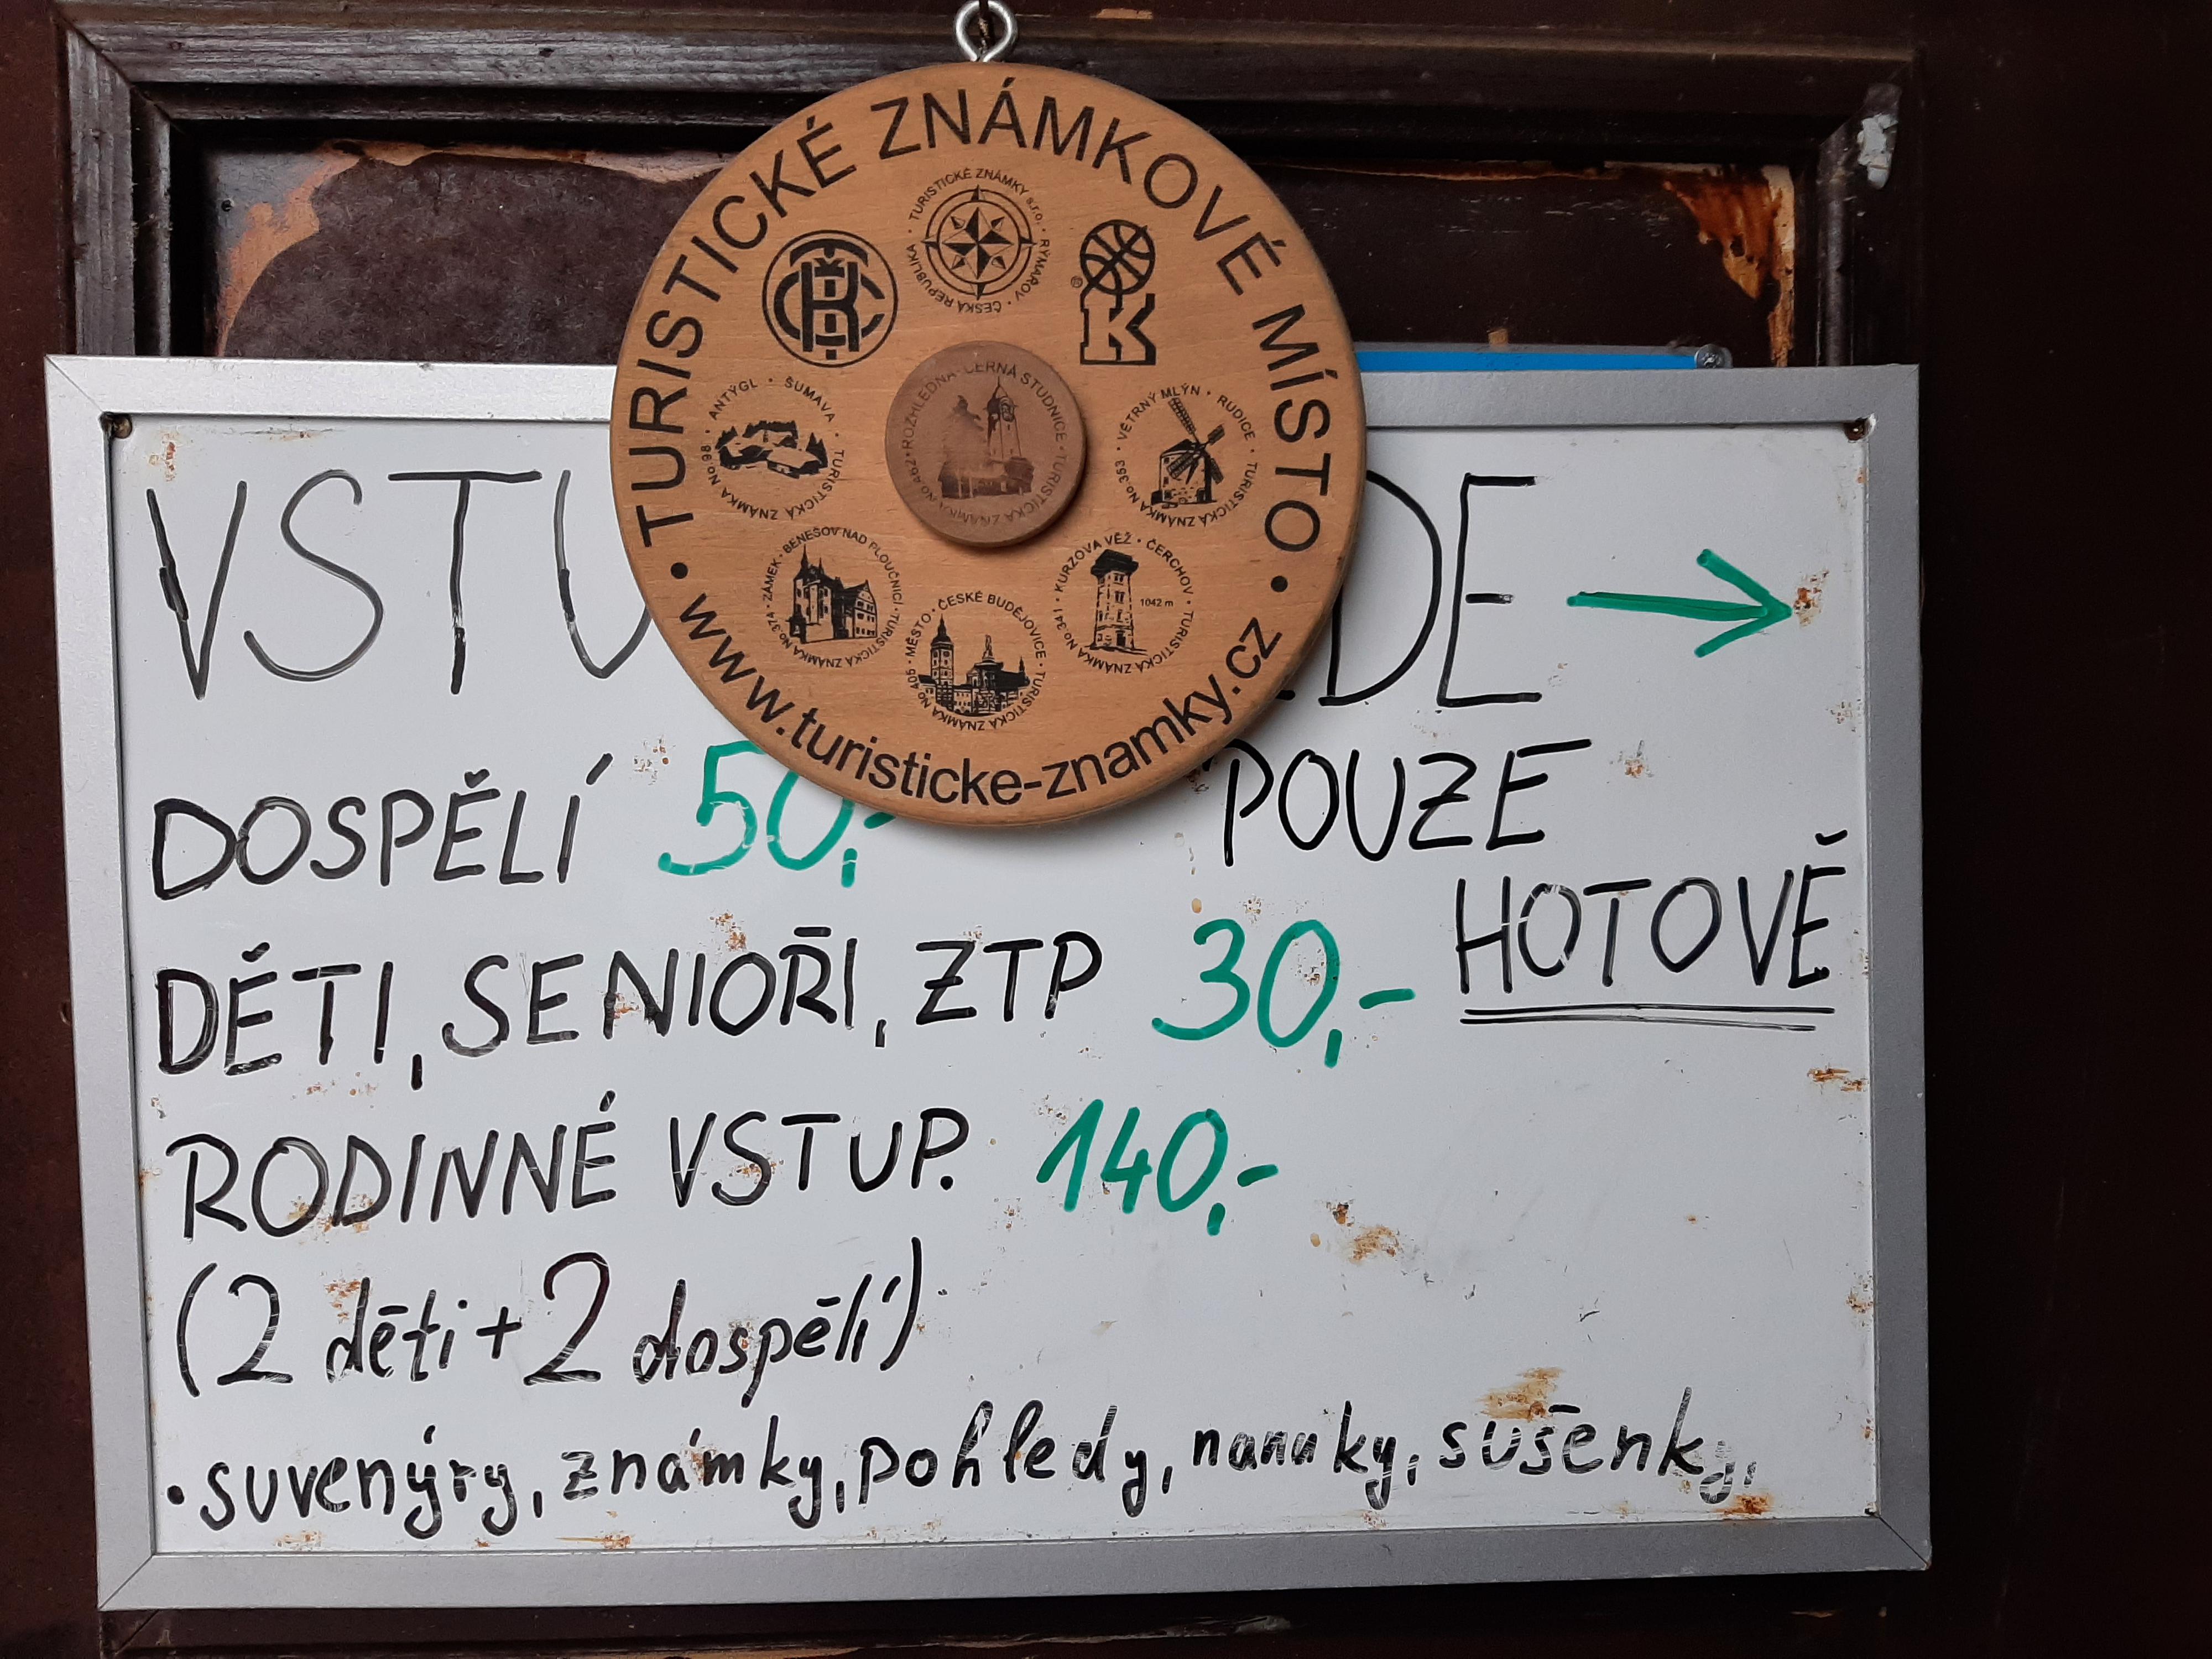 TURISTICKÉ ZNÁMKOVÉ MÍSTO
www.turisticke-znamky.cz
TURISTICKÉ ZNÁMKY s.r.o. · RÝMAŘOV · ČESKÁ REPUBLIKA
KČT
K
®
ANTÝGL · ŠUMAVA · TURISTICKÁ ZNÁMKA No.98
ROZHLEDNA · ČERNÁ STUDNICE · TURISTICKÁ ZNÁMKA No.462
VĚTRNÝ MLÝN · RUDICE · TURISTICKÁ ZNÁMKA No.353
ZÁMEK · BENEŠOV NAD PLOUČNICÍ · TURISTICKÁ ZNÁMKA No.374
MĚSTO · ČESKÉ BUDĚJOVICE · TURISTICKÁ ZNÁMKA No.405
KURZOVA VĚŽ · ČERCHOV · TURISTICKÁ ZNÁMKA No.341
1042 m
DOSPĚLÍ 50,- POUZE
HOTOVĚ
DĚTI, SENIOŘI, ZTP 30,-
RODINNÉ VSTUP. 140,-
(2 děti + 2 dospělí)
• suvenýry, známky, pohledy, nanuky, sušenky,